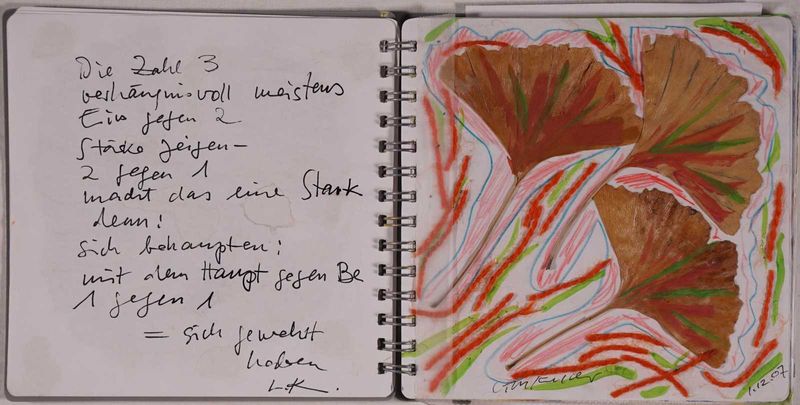 Die Zahl 3
verhängnisvoll meistens
Eins gegen 2
Stärke zeigen –
2 gegen 1
macht das eine Stark
denn!
sich behaupten:
mit dem Haupt gegen Be
1 gegen 1
= sich gewehrt
haben
L.K.
1.12.07